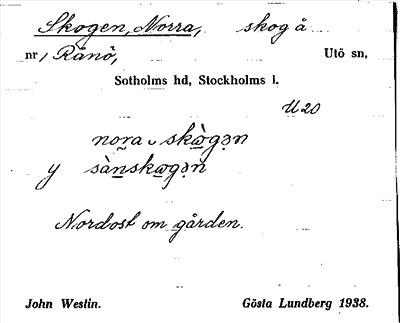 Skogen, Norra, skog å
nr 1 Rånö, Utö sn,
Sotholms hd, Stockholms l.
U 20
nora ᴗ skὼgən
y sànskωgən
Nordost om gården.
John Westin. Gösta Lundberg 1938.